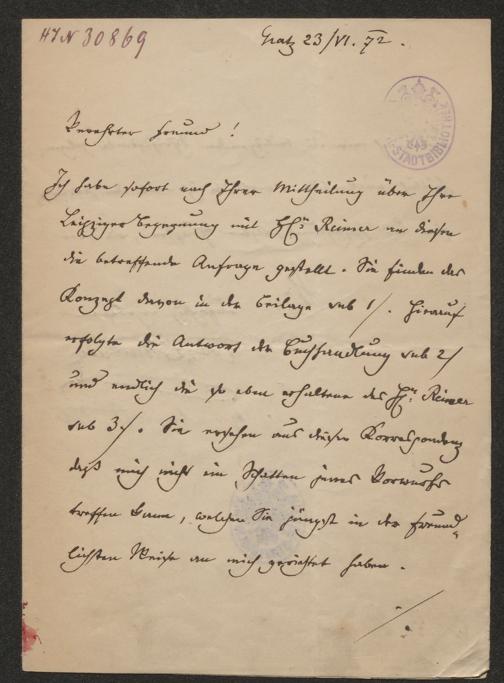 HJN 30869
Gratz 23/VI. 72.
STADTBIBLIOTHEK
Verehrter Freund!
Ich habe sofort nach Ihrer Mittheilung über Ihre
Leipziger Begegnung mit Hrn Reimer an diesen
die betreffende Anfrage gestellt. Sie finden das
Konzept davon in der Beilage sub 1/. Hierauf
erfolgte die Antwort der Buchhandlung sub 2/
und endlich die so eben erhaltene des Hrn. Reimer
sub 3/. Sie ersehen aus dieser Korrespondenz
daß mich nicht im Schatten jenes Vorwurfs
treffen kann, welchen Sie jüngst in der freund-
lichsten Weise an mich gerichtet haben.